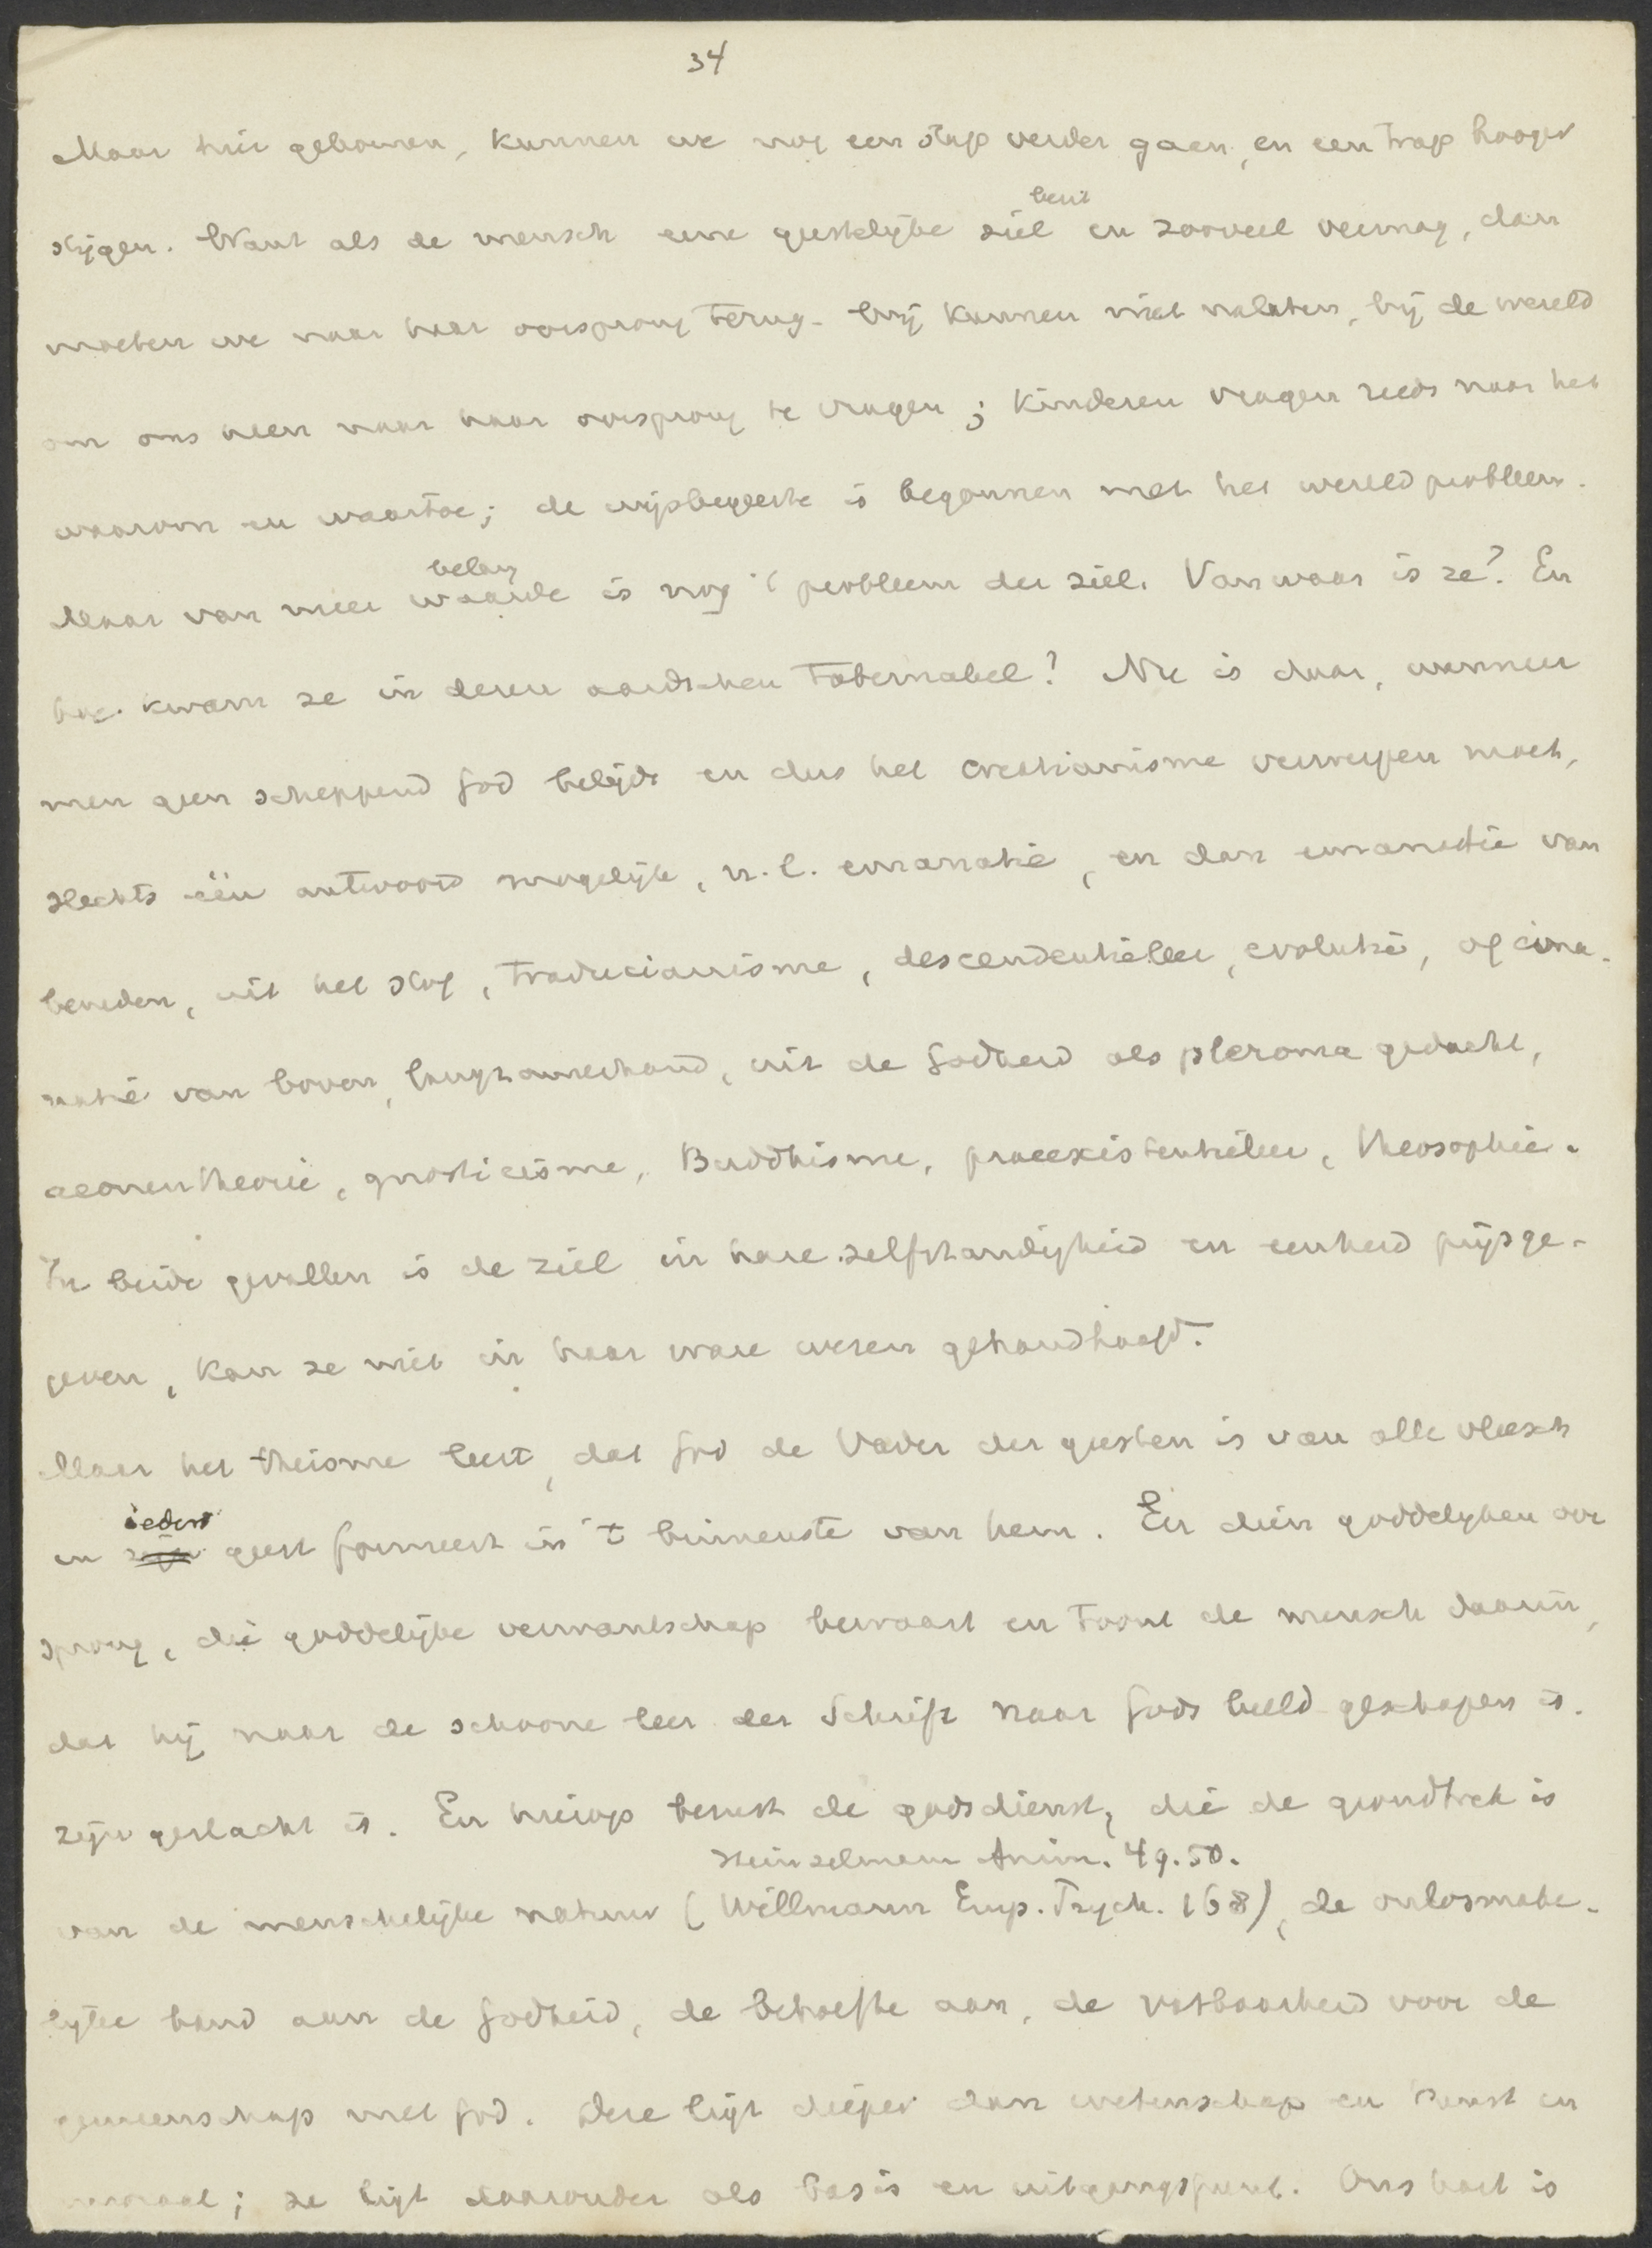 34
Maar hier gekomen, kunnen we nog een stap verder gaan, en een trap hooger
bezit
stijgen. Want als de mensch eene geestelijke ziel en zooveel vermag, dan
moeten we naar haar oorsprong terug. Wij kunnen niet nalaten, bij de wereld
om ons heen naar haar oorsprong te vragen; kinderen vragen reeds naar het
waarom en waartoe; de wijsbegeerte is begonnen met het wereldprobleem.
belang
Maar van meer waarde is nog 't probleem der ziel. Van waar is ze? En
hoe kwam ze in dezen aardschen tabernakel? Nu is daar, wanneer
men geen scheppend God belijdt en dus het creatianisme verwerpen moet,
slechts één antwoord mogelijk, n.l. emanatie, en dan emanatie van
beneden, uit het stof, traducianisme, descendentieleer, evolutie, of ema-
natie van boven, langzamerhand, uit de Godheid als pleroma gedacht,
aeonentheorie, gnosticisme, Buddhisme, praeexistentieleer, theosophie.
In beide gevallen is de ziel in hare zelfstandigheid en eenheid prijsge-
geven, kan ze niet in haar ware wezen gehandhaafd.
Maar het theisme leert, dat God de Vader der geesten is van alle vleesch
ieders
en geest formeert in 't binnenste van hem. En dien goddelijken oor
sprong, die goddelijke verwantschap bewaart en toont de mensch daarin,
dat hij naar de schoone leer der Schrift naar Gods beeld geschapen is.
zijn geslacht is. En hierop berust de godsdienst, die de grondtrek is
Heinzelmann Anim. 49.50.
van de menschelijke natuur (Willmann Emp. Psych. 168), de onlosmake-
lijke band aan de Godheid, de behoefte aan, de vatbaarheid voor de
gemeenschap met God. Deze ligt dieper dan wetenschap en kunst en
moraal; ze ligt daaronder als basis en uitgangspunt. Ons hart is